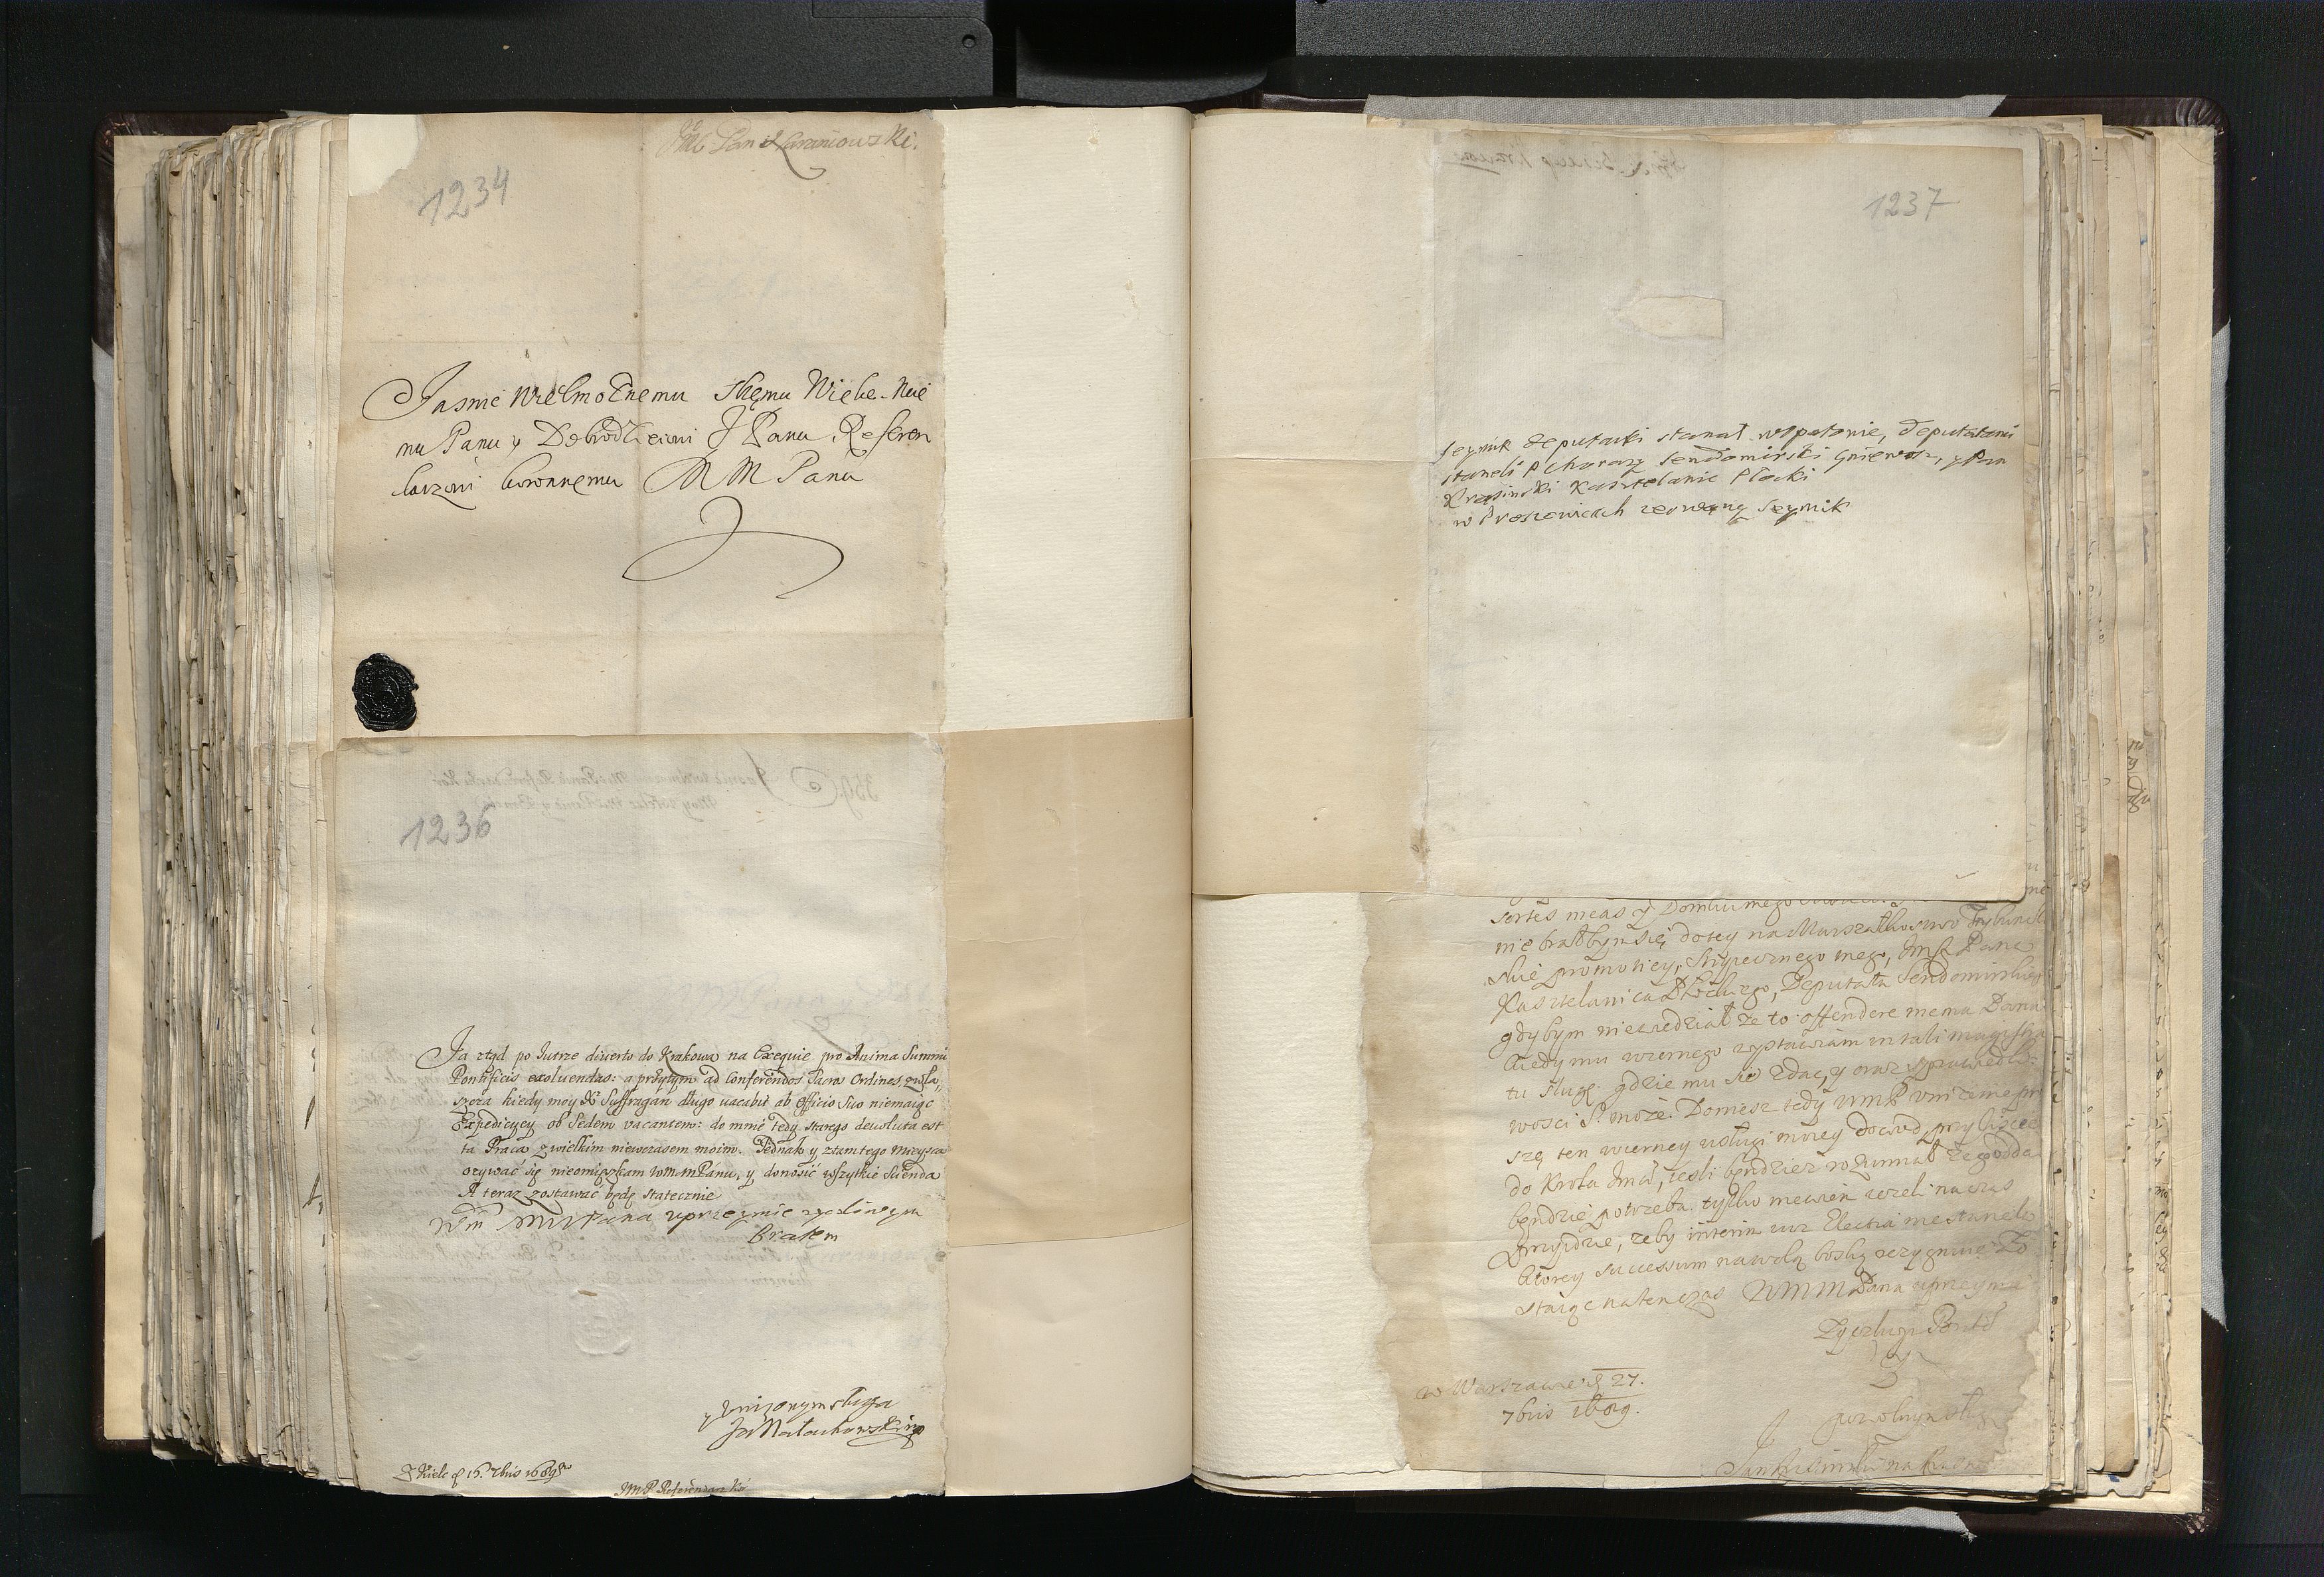 1234
Jasnie Wielmożnemu Memu Wielce Mci
mu Panu y Dobrodzieiowi J Panu Referen
darzowi Coronnemu M M Panu
1236
Ja ztąd po Jutrze diverto do Krakowa na Exequie pro Anima Summi
Pontificis exoluendas: a przytym ad Conferendos Sacros Ordines, zwła,
szcza kiedy moy X Suffragan długo uacabit ab Officio Suo niemaiąc
Expedicyey ob Sedem vacantem: do mnie tedy starego deuoluta est
ta Praca z wielkim niewczasem moim. Jednak y ztamtego mieysca
ozywać się nieomięszkam WMMPánu, y donosić wszytkie Scienda
A teraz zostawać będę Statecznie
Wm MMPana uprzeymie zyczliwym
Bratem
y Uniżonym sługą
Ja Małachowski
z Kielc d 16. 7bris 1689
JMP Referendarz Kor
1237
Seymik deputacki stanął w Opatowie, deputatami
staneli P Chorązy Sendomirski Gniewosz, y Pan
Krasinski Kasztelanic Płocki
w Proszowicach zerwany Seymik
sortes meas y Domu mego
nie brałbym się do tey na Marszałkowstwo Trybunal
skie promotiey, Stryecznego mego, Jm Pana
Kasztelanica Płockiego, Deputata Sendomirskiego
gdybym niewiedział że to offendere niema Pana
kiedy mu wiernego wystawiam in tali
tu sługę gdzie mu się zdać, y oraz sprawiedli
wosci S. może. Doniesz tedy WMP uniżenie pro
szę ten wierney usługi moiey dowod, przy
do Krola Jmci, iesli będziesz rozumiał że
będzie potrzeba tylko niewiem iezeli na czas
przyidzie, żeby interim iuż Electia nie stanęła
ktorey successum na wolą boską rezygnuię. Zo
staiąc na ten czas WMMPana uprzeymie
Zyczliwym
w Warszawie d 27.
7bris 1689.
powolnym